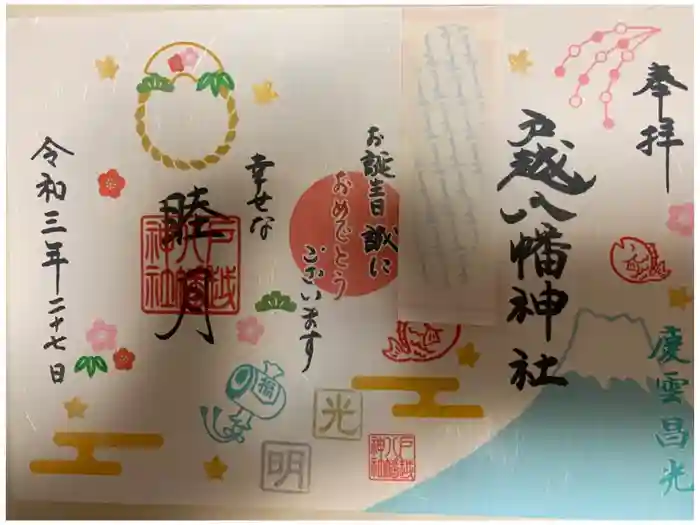 奉拝
戸越八幡神社
慶雲昌光
お誕生日誠に
おめでとう
ございます
幸せな
睦月
戸越
八幡
神社
令和三年二十七日
福
光
明
戸越
八幡
神社